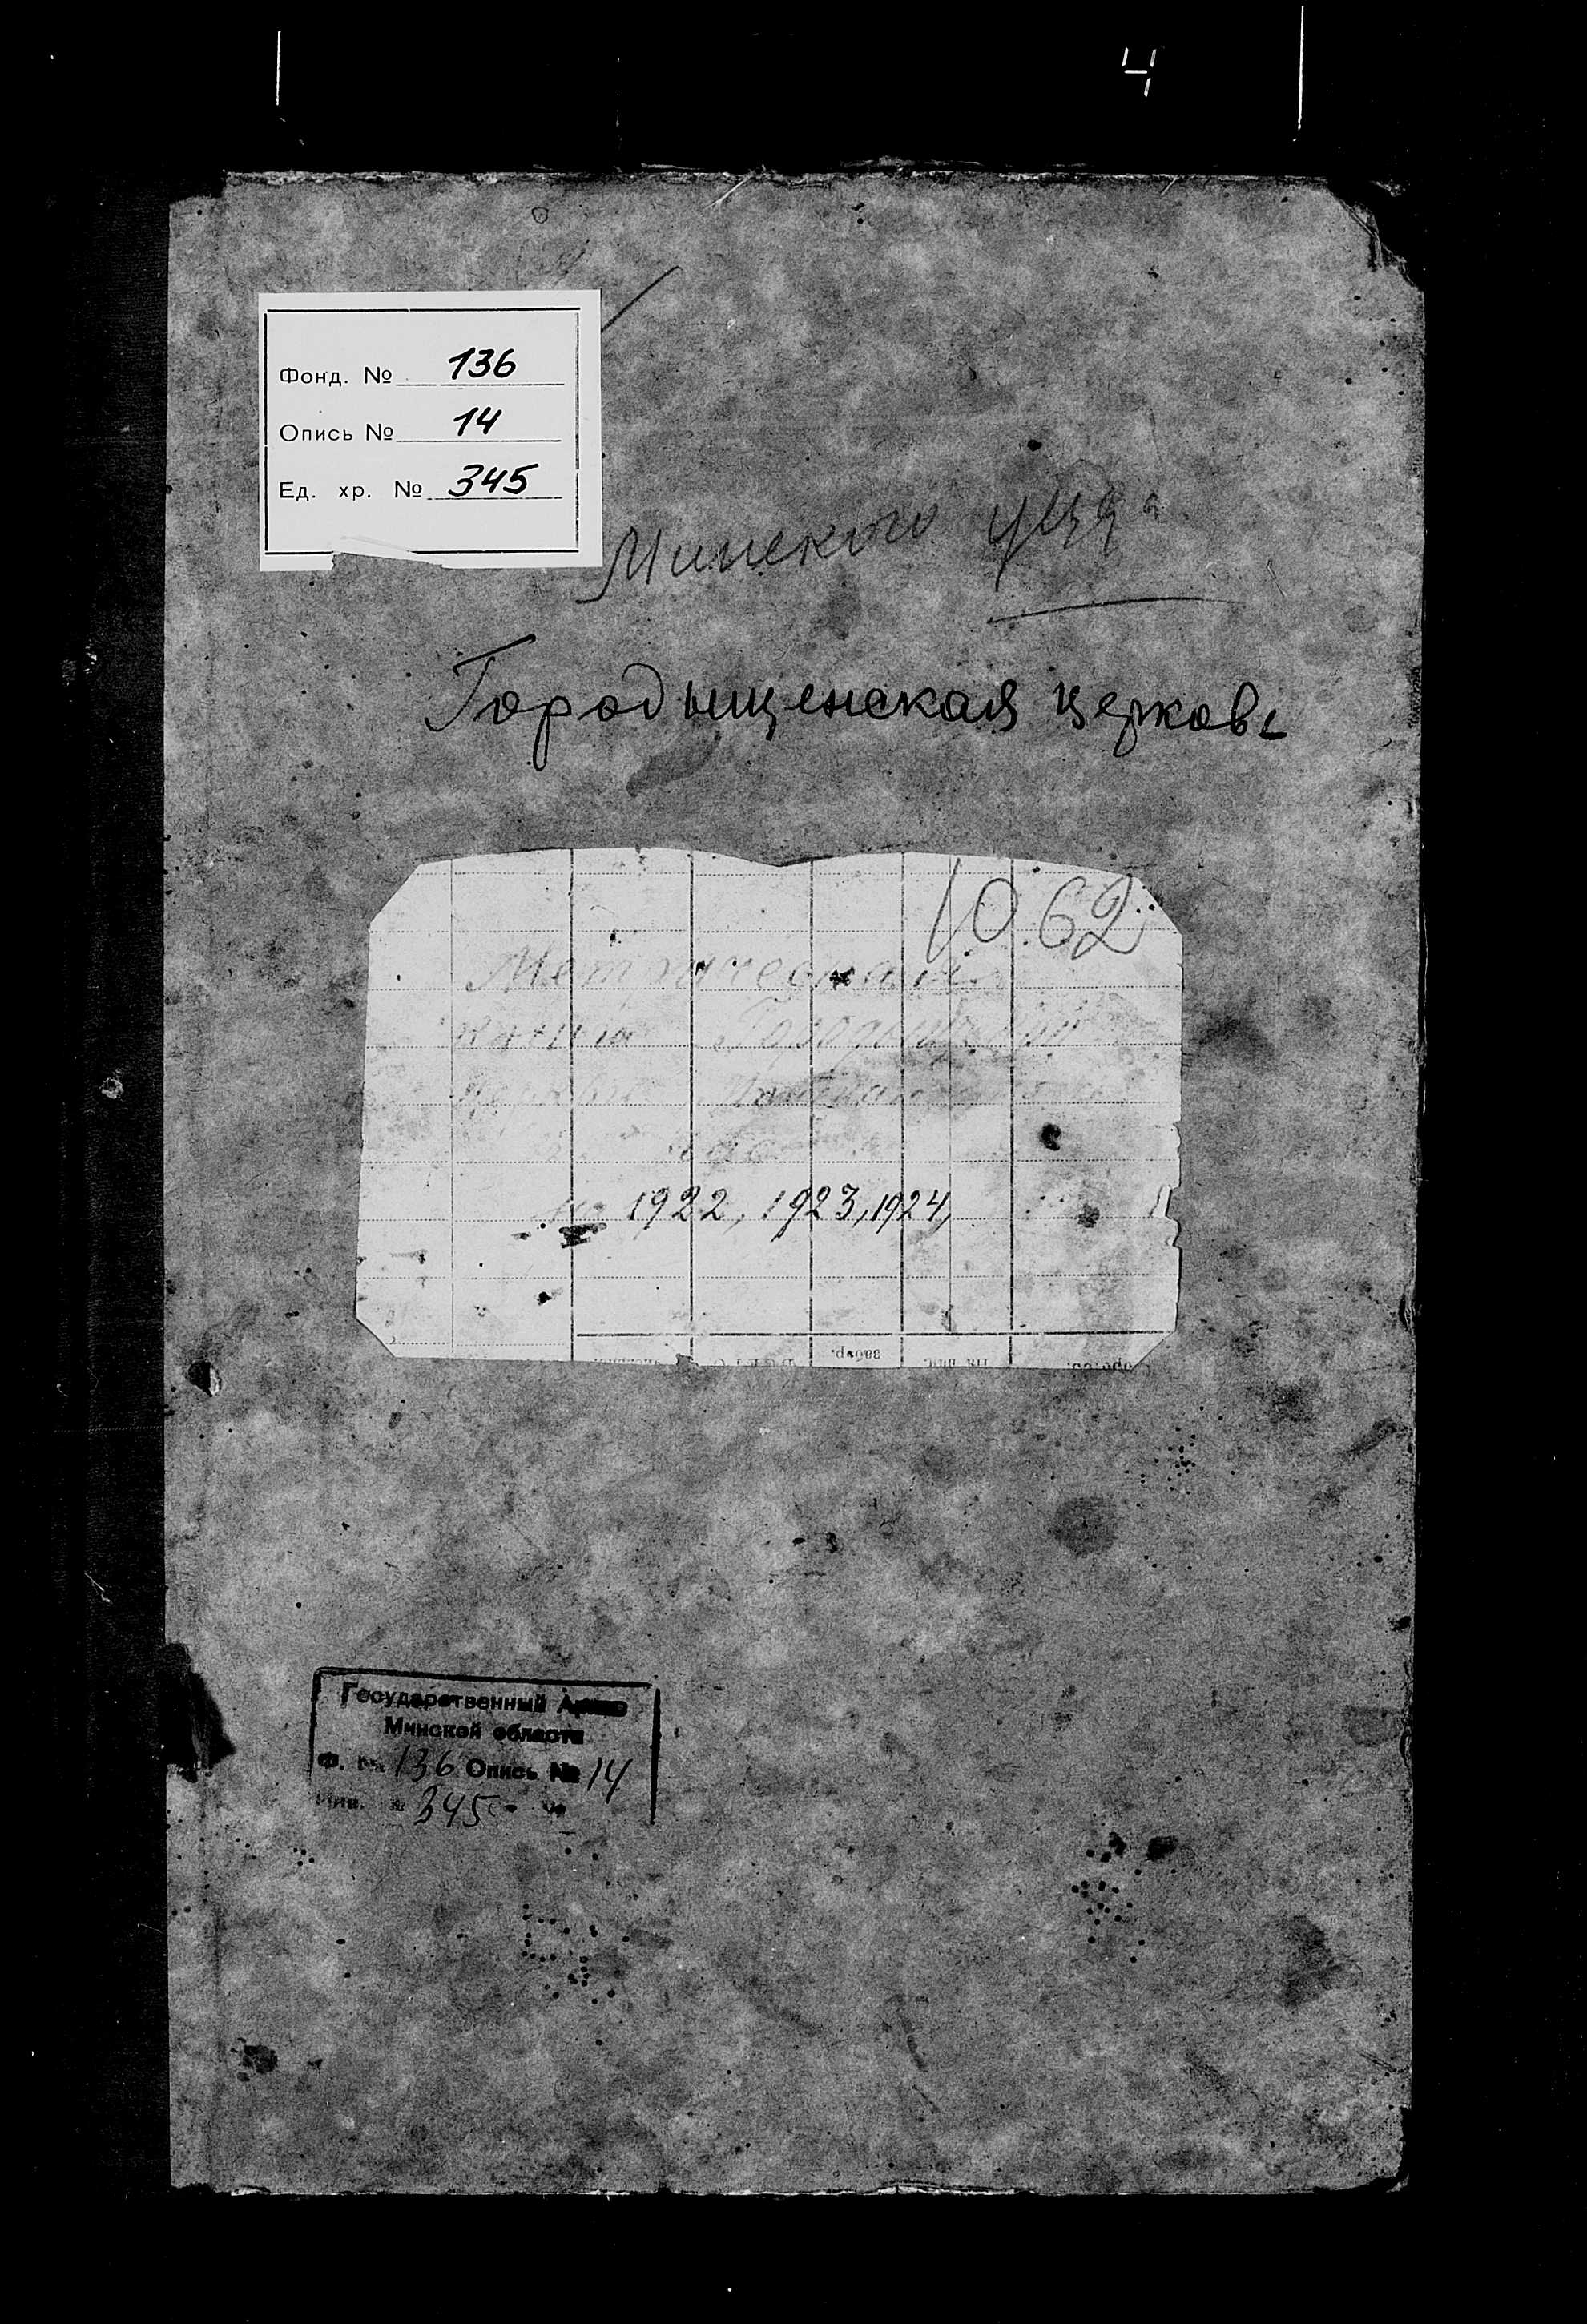 4
Фонд. № 136
Опись № 14
Ед. хр. № 345
Минского уезда
Городищенская церковь
1062
Метрическая
книга
на 1922, 1923, 1924,
забор.
Государственный Архив
Минской области
Ф. № 136 Опись № 14
Инв. № 345